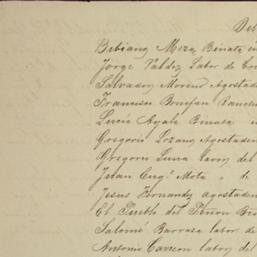 Deb
Bebiano Meza Binata in
Jorge Valdez Labor de Cor
Salvador Moreno Agostade
Francisco Ranche
Lucio Ayala Binata in
Gregorio Lozano Agostaden
Gregorio Luna labor del
Juan Eug.º Mota " de
Jesus Hernandz agostaden
El Pueblo del Peñon Bla
Salomé Barraza labor de
Antonio Carreon labor del